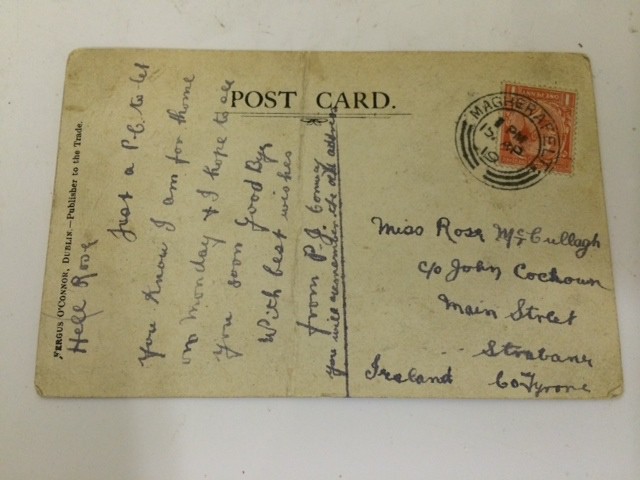 POST CARD.
FERGUS O'CONNOR, DUBLIN.—Publisher to the Trade.
Hell Rose
Just a P.C. to let
you know I am for home
on Monday & I hope to see
you soon Good Bye
With best wishes
from P.J. Conway
you will remember the old address
MAGHERAFELT
1 PM
15
19
Miss Rose McCullagh
c/o John Cochoun
Main Street
Strabane
Ireland Co Tyrone